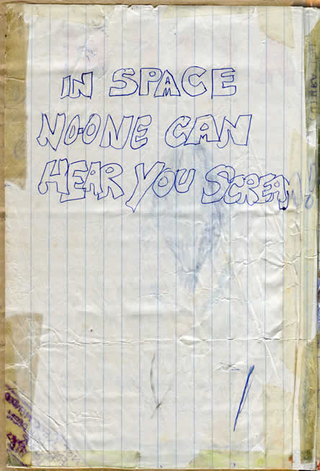 IN SPACE
NO-ONE CAN
HEAR YOU SCREAM